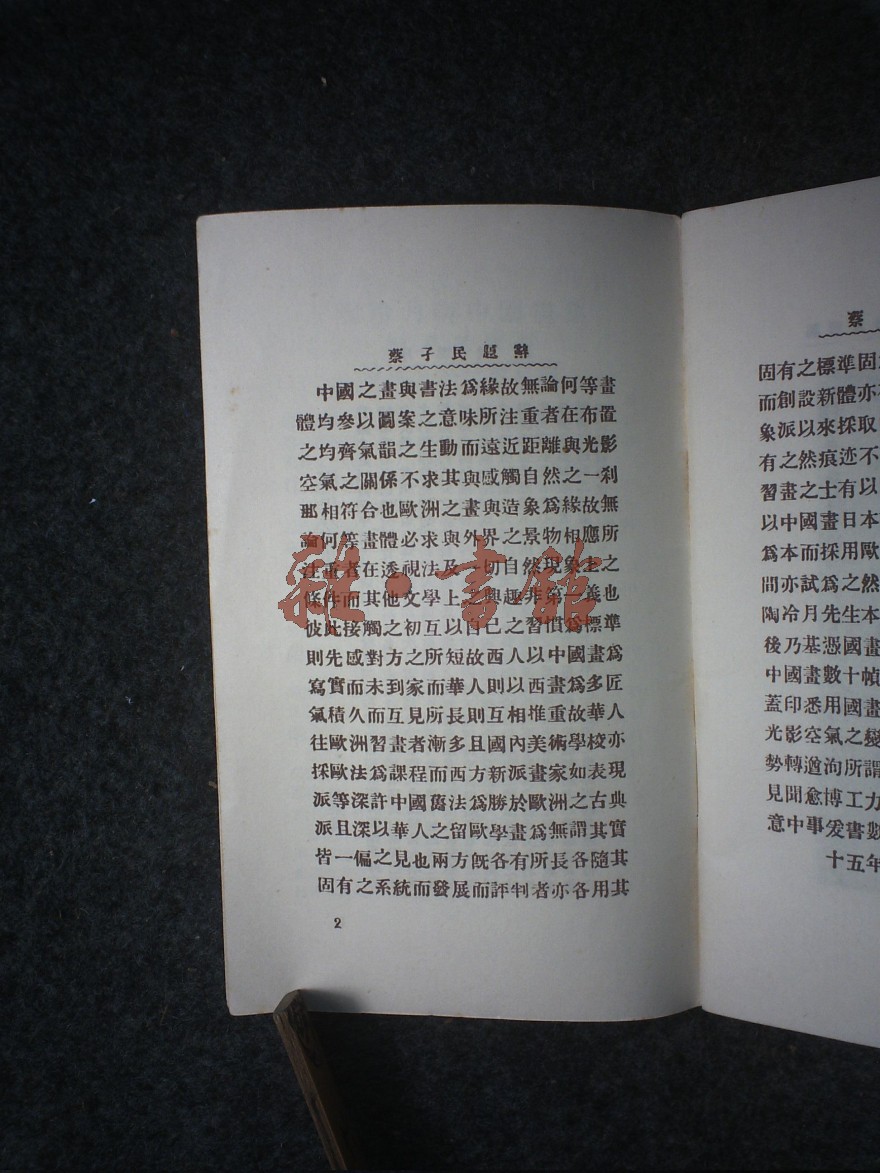 蔡孑民題辭
中國之畫與書法爲緣故無論何等畫
體均參以圖案之意味所注重者在布置
之均齊氣韻之生動而遠近距離與光影
空氣之關係不求其與感觸自然之一刹
那相符合也歐洲之畫與造象爲緣故無
論何等畫體必求與外界之景物相應所
注重者在透視法及一切自然現象上之
條件而其他文學上之興趣非第一義也
彼此接觸之初互以自己之習慣爲標準
則先感對方之所短故西人以中國畫爲
寫實而未到家而華人則以西畫爲多匠
氣積久而互見所長則互相推重故華人
往歐洲習畫者漸多且國內美術學校亦
採歐法爲課程而西方新派畫家如表現
派等深許中國舊法爲勝於歐洲之古典
派且深以華人之留歐學畫爲無謂其實
皆一偏之見也兩方旣各有所長各隨其
固有之系統而發展而評判者亦各用其
2
蔡
固有之標準固
而創設新體亦
象派以來採取
有之然痕迹不
習畫之士有以
以中國畫日本
爲本而採用歐
間亦試爲之然
陶冷月先生本
後乃基憑國畫
中國畫數十幀
蓋印悉用國畫
光影空氣之變
勢轉遒洵所謂
見聞愈博工力
意中事爰書數
十五年
雜·書館